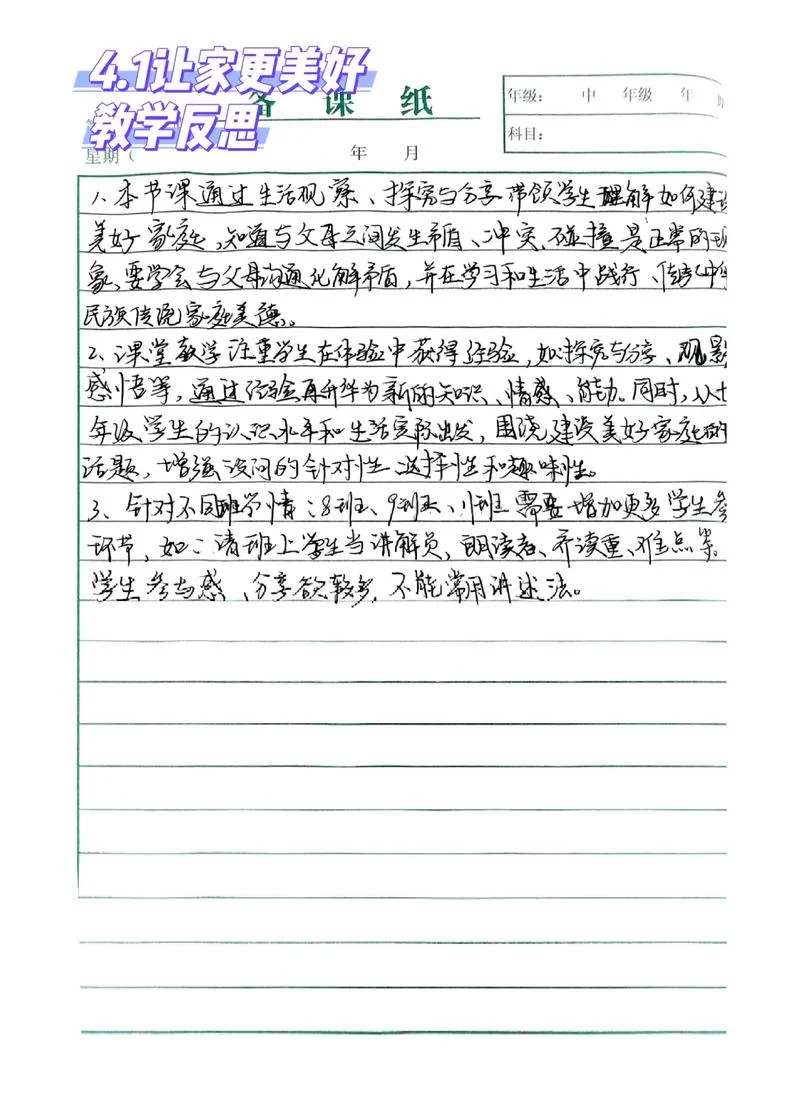 4.1让家更美好
教学反思
备课纸
年级： 中 年级 年
科目：
星期（ 年 月
1、本节课通过生活观察、探究与分享带领学生理解如何建设
美好家庭，知道与父母之间发生矛盾、冲突、碰撞是正常的现
象，要学会与父母沟通化解矛盾，并在学习和生活中践行、传承中华
民族传统家庭美德。
2、课堂教学注重学生在体验中获得经验，如探究与分享、观影
感悟等，通过经验再升华为新的知识、情感、能力。同时，从七
年级学生的认识水平和生活实际出发，围绕建设美好家庭的
话题，增强设问的针对性、选择性和趣味性。
3、针对不同班学情：8班、9班、11班需要增加更多学生参
环节，如：请班上学生当讲解员，朗读者、齐读重、难点等。
学生参与感、分享欲较多，不能常用讲述法。